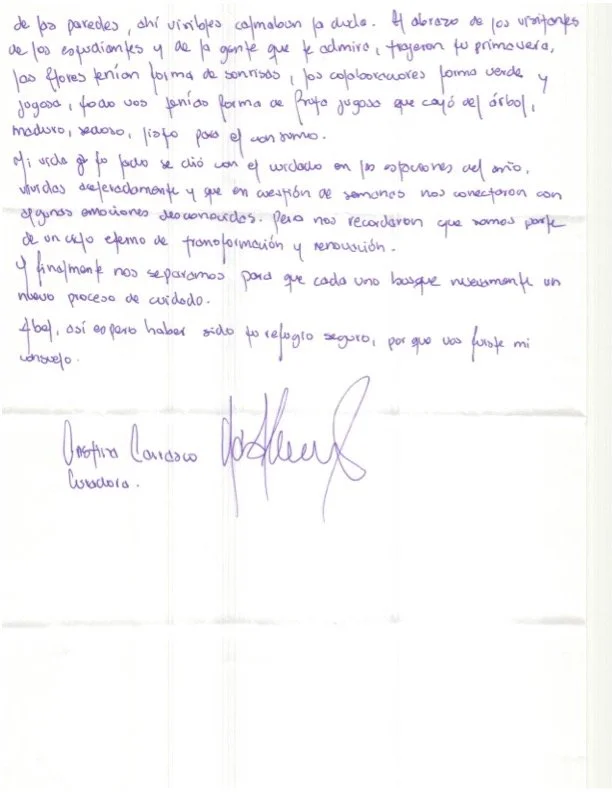 de las paredes, ahí visibles calmaban la duda. El abrazo de los visitantes
de los estudiantes y de la gente que te admira, trajeron tu primavera,
las flores tenían forma de sonrisas, los colaboradores forma verde y
jugosa, todo vos tenías forma de fruta jugosa que cayó del árbol,
maduro, sedoso, listo para el consumo.
Mi vida y tu lado se dió con el cuidado en las estaciones del año,
vividas aceleradamente y que en cuestión de semanas nos conectaron con
algunas emociones desconocidas. Pero nos recordaron que somos parte
de un ciclo eterno de transformación y renovación.
Y finalmente nos separamos para que cada uno busque nuevamente un
nuevo proceso de cuidado.
Abel, así espero haber sido tu refugio seguro, por que vos fuiste mi
consuelo.
Carrasco
Curadora.